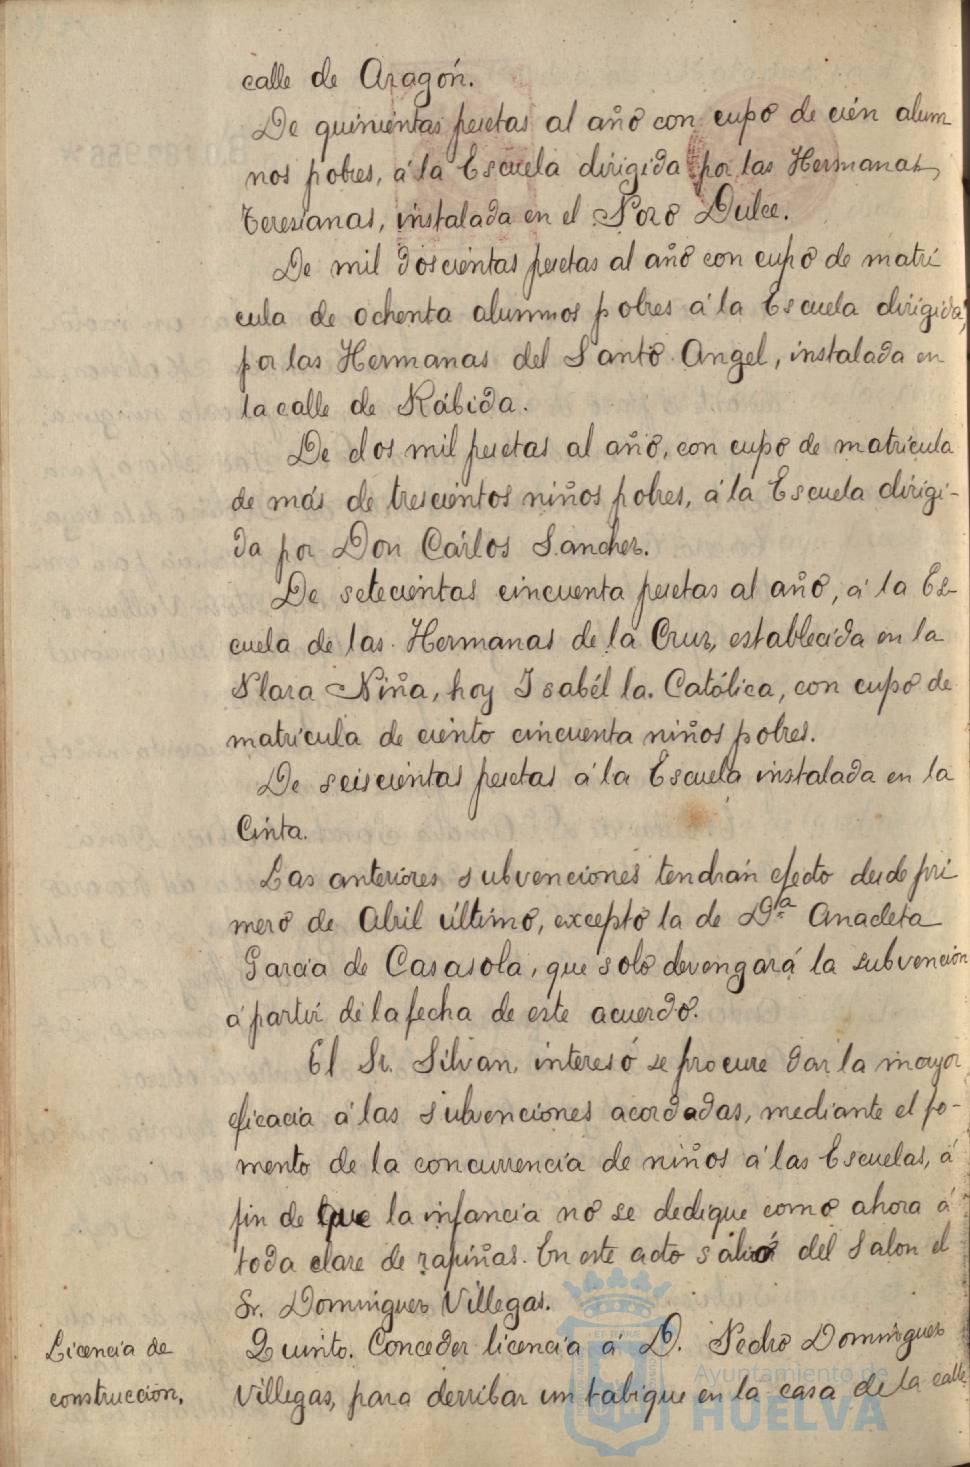 calle de Aragón.
De quinientas pesetas al año con cupo de cién alum
nos pobres, á la Escuela dirigida por las Hermanas
Teresianas, instalada en el Pozo Dulce.
De mil doscientas pesetas al año con cupo de matrí
cula de ochenta alumnos pobres á la Escuela dirigida,
por las Hermanas del Santo Angel, instalada en
la calle de Rábida.
De dos mil pesetas al año, con cupo de matrícula
de más de trescientos niños pobres, á la Escuela dirigi-
da por Don Cárlos Sanchez.
De setecientas cincuenta pesetas al año, á la Es-
cuela de las Hermanas de la Cruz, establecida en la
Plaza Niña, hoy Isabél la Católica, con cupo de
matrícula de ciento cincuenta niños pobres.
De seiscientas pesetas á la Escuela instalada en la
Cinta.
Las anteriores subvenciones tendrán efecto desde pri
mero de Abril último, excepto la de Dª Anacleta
García de Casasola, que solo devengará la subvención
á partir de la fecha de este acuerdo.
El Sr. Silvan, interesó se procure dar la mayor
eficacia á las subvenciones acordadas, mediante el fo-
mento de la concurrencia de niños á las Escuelas, á
fin de que la infancia no se dedique como ahora á
toda clase de rapiñas. En este acto salió del Salon el
Sr. Dominguez Villegas.
Licencia de
construcción.
Quinto. Conceder licencia á D. Pedro Dominguez
Villegas, para derribar un tabique en la casa de la calle
Ayuntamiento de
HUELVA